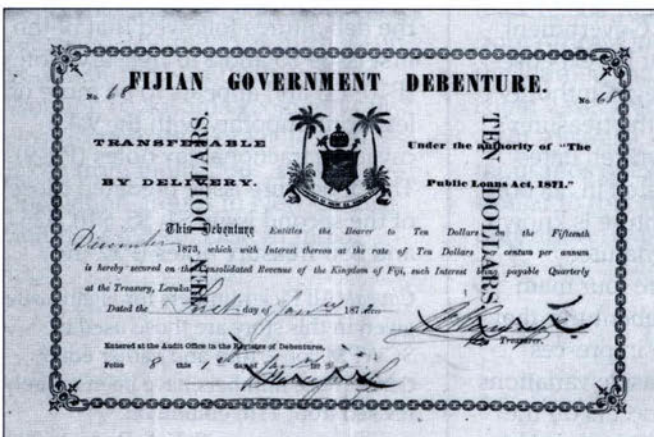 FIJIAN GOVERNMENT DEBENTURE.
No. 68
No. 68
TRANSFERABLE
BY DELIVERY.
Under the authority of "The
Public Loans Act, 1871."
TEN DOLLARS.
TEN DOLLARS.
This Debenture Entitles the Bearer to Ten Dollars on the Fifteenth
December 1873, which with Interest thereon at the rate of Ten Dollars centum per annum
is hereby secured on the Consolidated Revenue of the Kingdom of Fiji, such Interest being payable Quarterly
at the Treasury, Levuka.
Dated the First day of Jany 1872
Treasurer.
Entered at the Audit Office in the Register of Debentures,
Folio 8 this 1st day of Jany